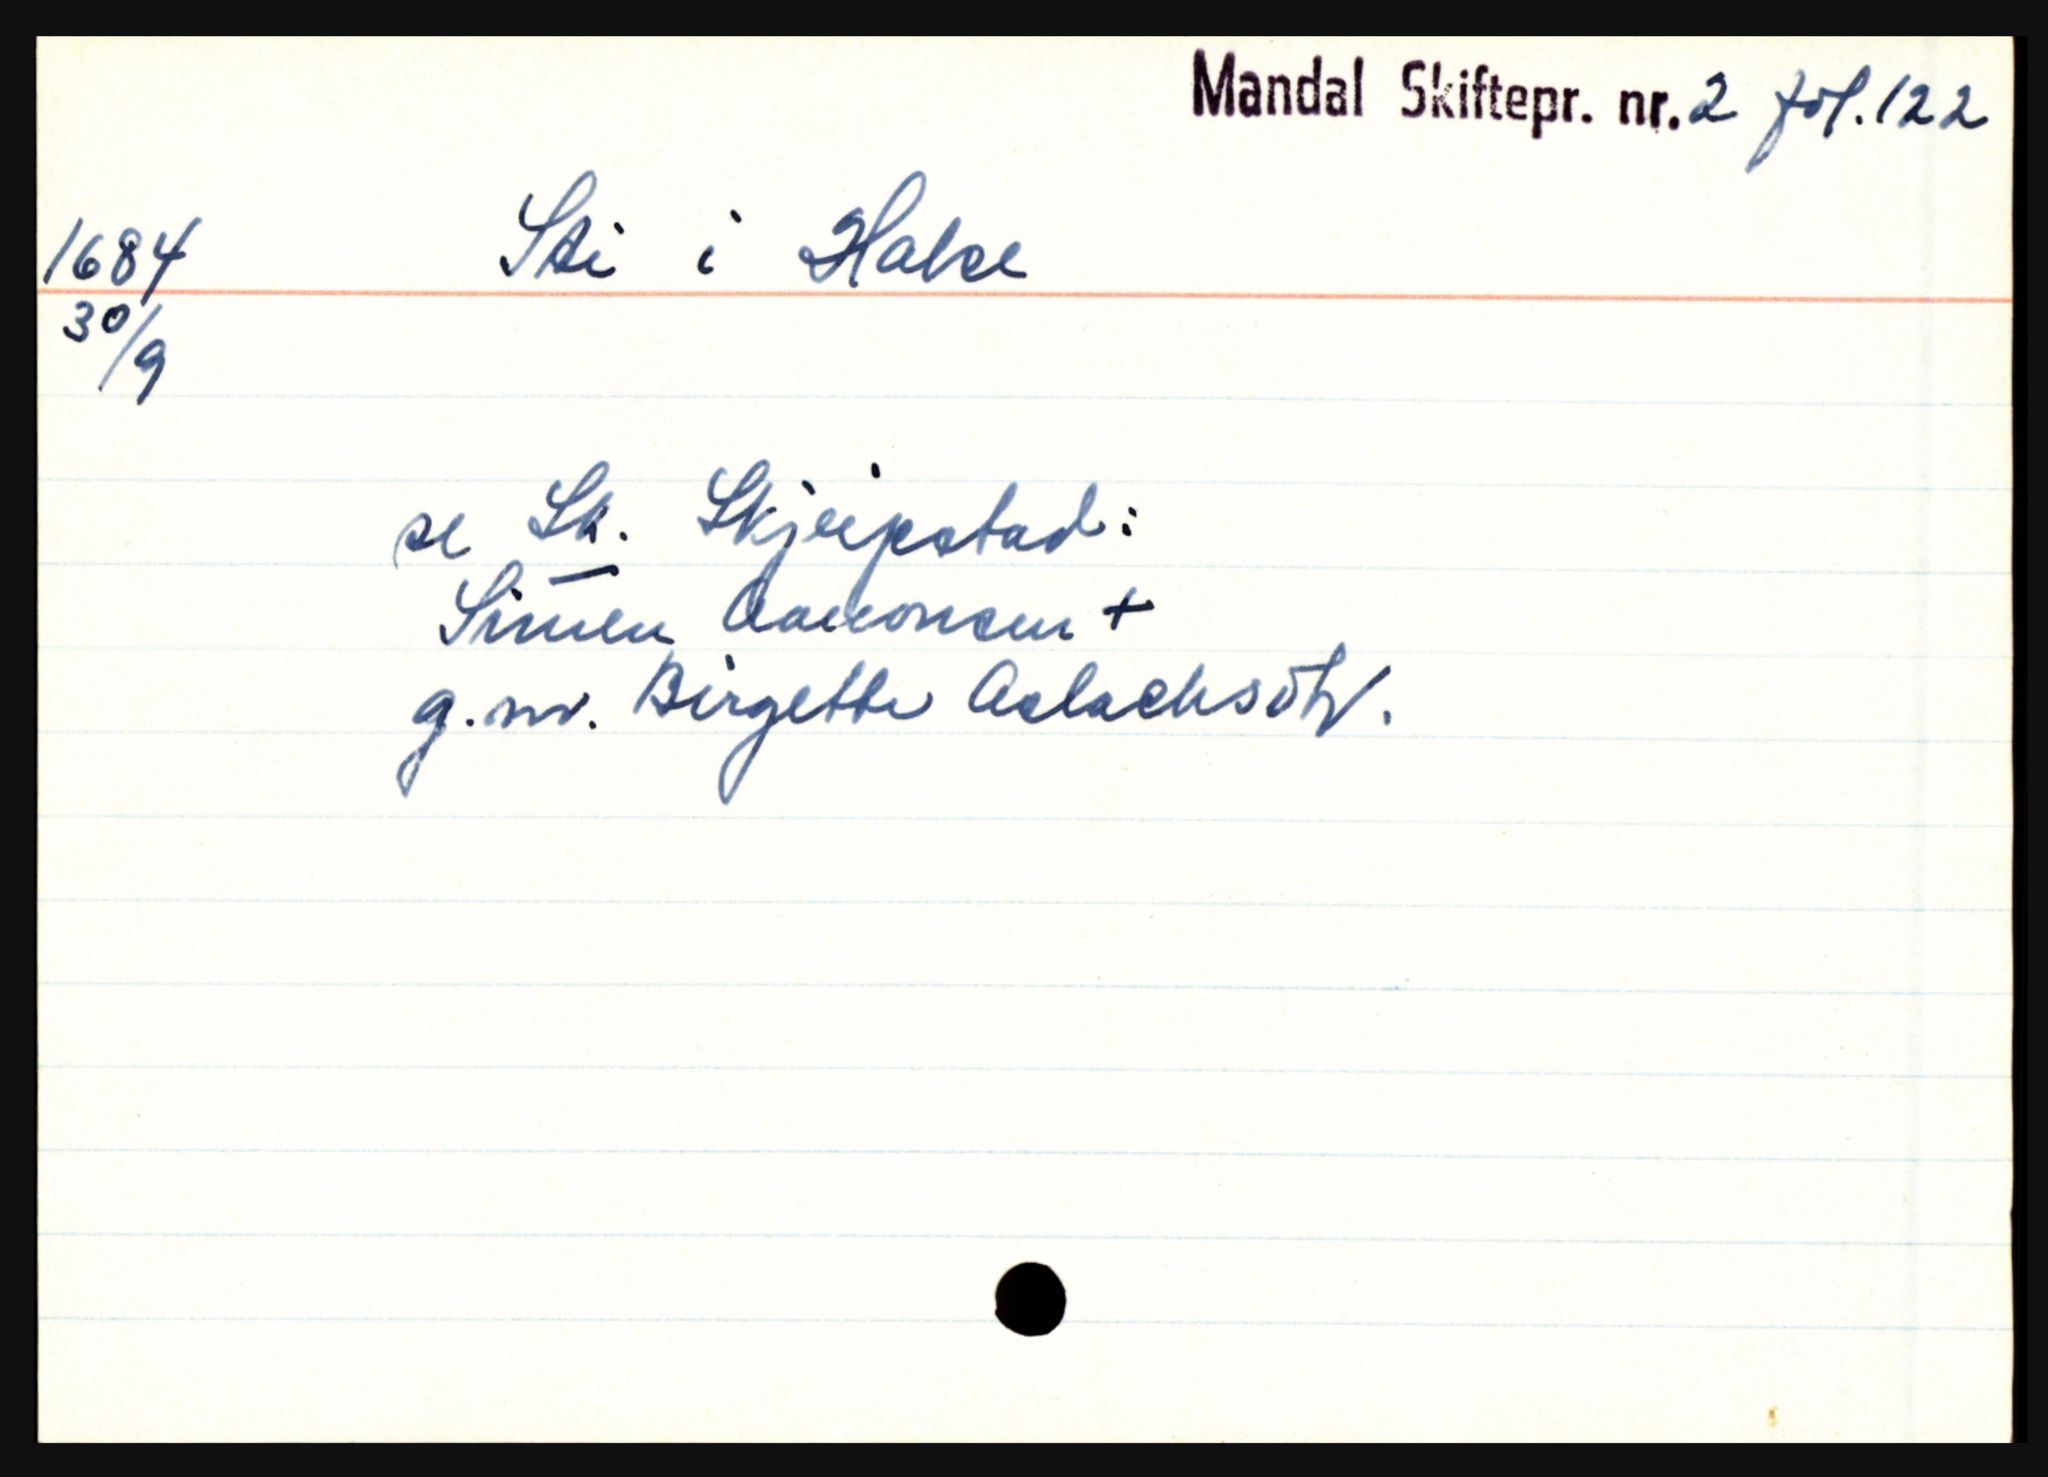 Mandal Skiftepr. nr. 2 fol. 122
1684 Ski i Halse
30/9
se Sk. Skjeipstad:
Simen Aamonsen +
g.m. Birgette Aslachsdtr.